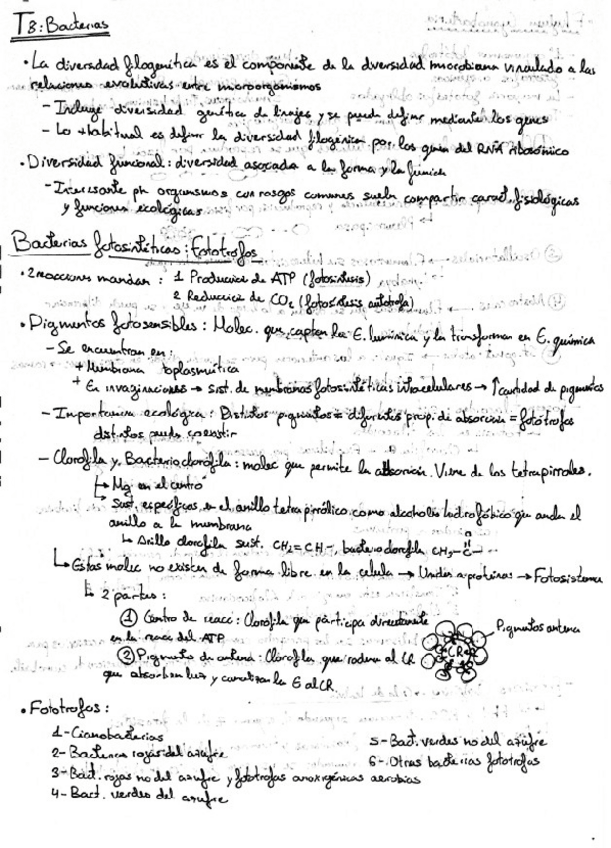 T8: Bacterias
• La diversidad filogenética es el componente de la diversidad microbiana vinculado a las
relaciones evolutivas entre microorganismos
- Incluye diversidad genética de linajes y se puede definir mediante los genes
- Lo + habitual es definir la diversidad filogénica por los genes del RNA ribosómico
• Diversidad funcional: diversidad asociada a la forma y la función
- Interesante pq organismos con rasgos comunes suelen compartir caract. fisiológicas
y funciones ecológicas
Bacterias fotosintéticas: Fototrofos
• 2 reacciones mandan: 1 Producción de ATP (fotosíntesis)
2 Reducción de CO2 (fotosíntesis autótrofa)
• Pigmentos fotosensibles: Molec. que captan la E. lumínica y la transforman en E. química
- Se encuentran en:
+ Membrana toplasmática
+ En invaginaciones → sist. de membranas fotosintéticas intracelulares → ↑ cantidad de pigmentos
- Importancia ecológica: Distintos pigmentos = diferentes prop. de absorción = fotótrofos
distintos pueden coexistir
- Clorofila y Bacterioclorofila: molec que permite la absorción. Viene de los tetrapirroles.
↳ Mg en el centro
↳ Sust. específicas en el anillo tetrapirrólico como alcohol hidrofóbico que ancla el
anillo a la membrana
↳ Anillo clorofila sust. CH2=CH-, bacterioclorofila CH3-C-
O
↳ Estas molec no existen de forma libre en la célula → Unidas a proteínas → Fotosistema
↳ 2 partes:
① Centro de reacc: Clorofila que participa directamente
en la reacc del ATP
Pigmentos antena
CR
② Pigmento de antena: Clorofilas que rodean al CR
que absorben luz y canalizan la E al CR.
• Fototrofos:
1- Cianobacterias
5- Bact. verdes no del azufre
2- Bacterias rojas del azufre
6- Otras bacterias fototrofas
3- Bact. rojas no del azufre y fototrofas anoxigénicas aerobias
4- Bact. verdes del azufre